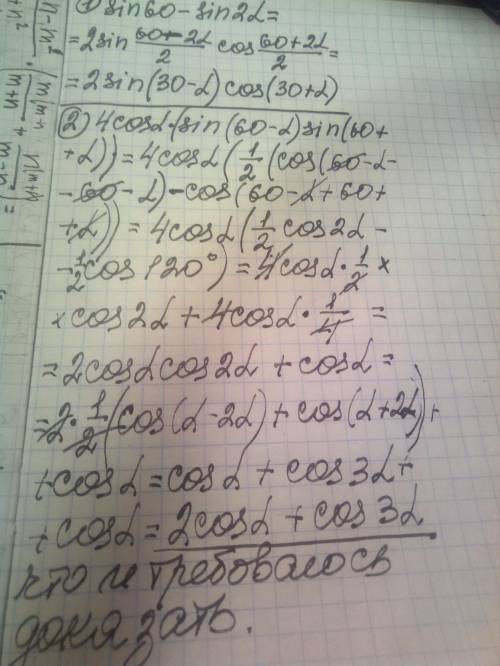 1) sin60 - sin2α =
= 2sin (60-2α)/2 cos (60+2α)/2 =
= 2sin(30-α)cos(30+α)
2) 4cosα·(sin(60-α)sin(60+
+α)) = 4cosα(1/2(cos(60-α-
-60-α)-cos(60-α+60+
+α)) = 4cosα(1/2 cos2α -
-1/2 cos120°) = 4cosα·1/2 ×
×cos2α + 4cosα·1/4 =
= 2cosαcos2α + cosα =
= 2·1/2(cos(α-2α)+cos(α+2α))+
+cosα = cosα + cos3α+
+cosα = 2cosα + cos3α
что и требовалось
доказать.